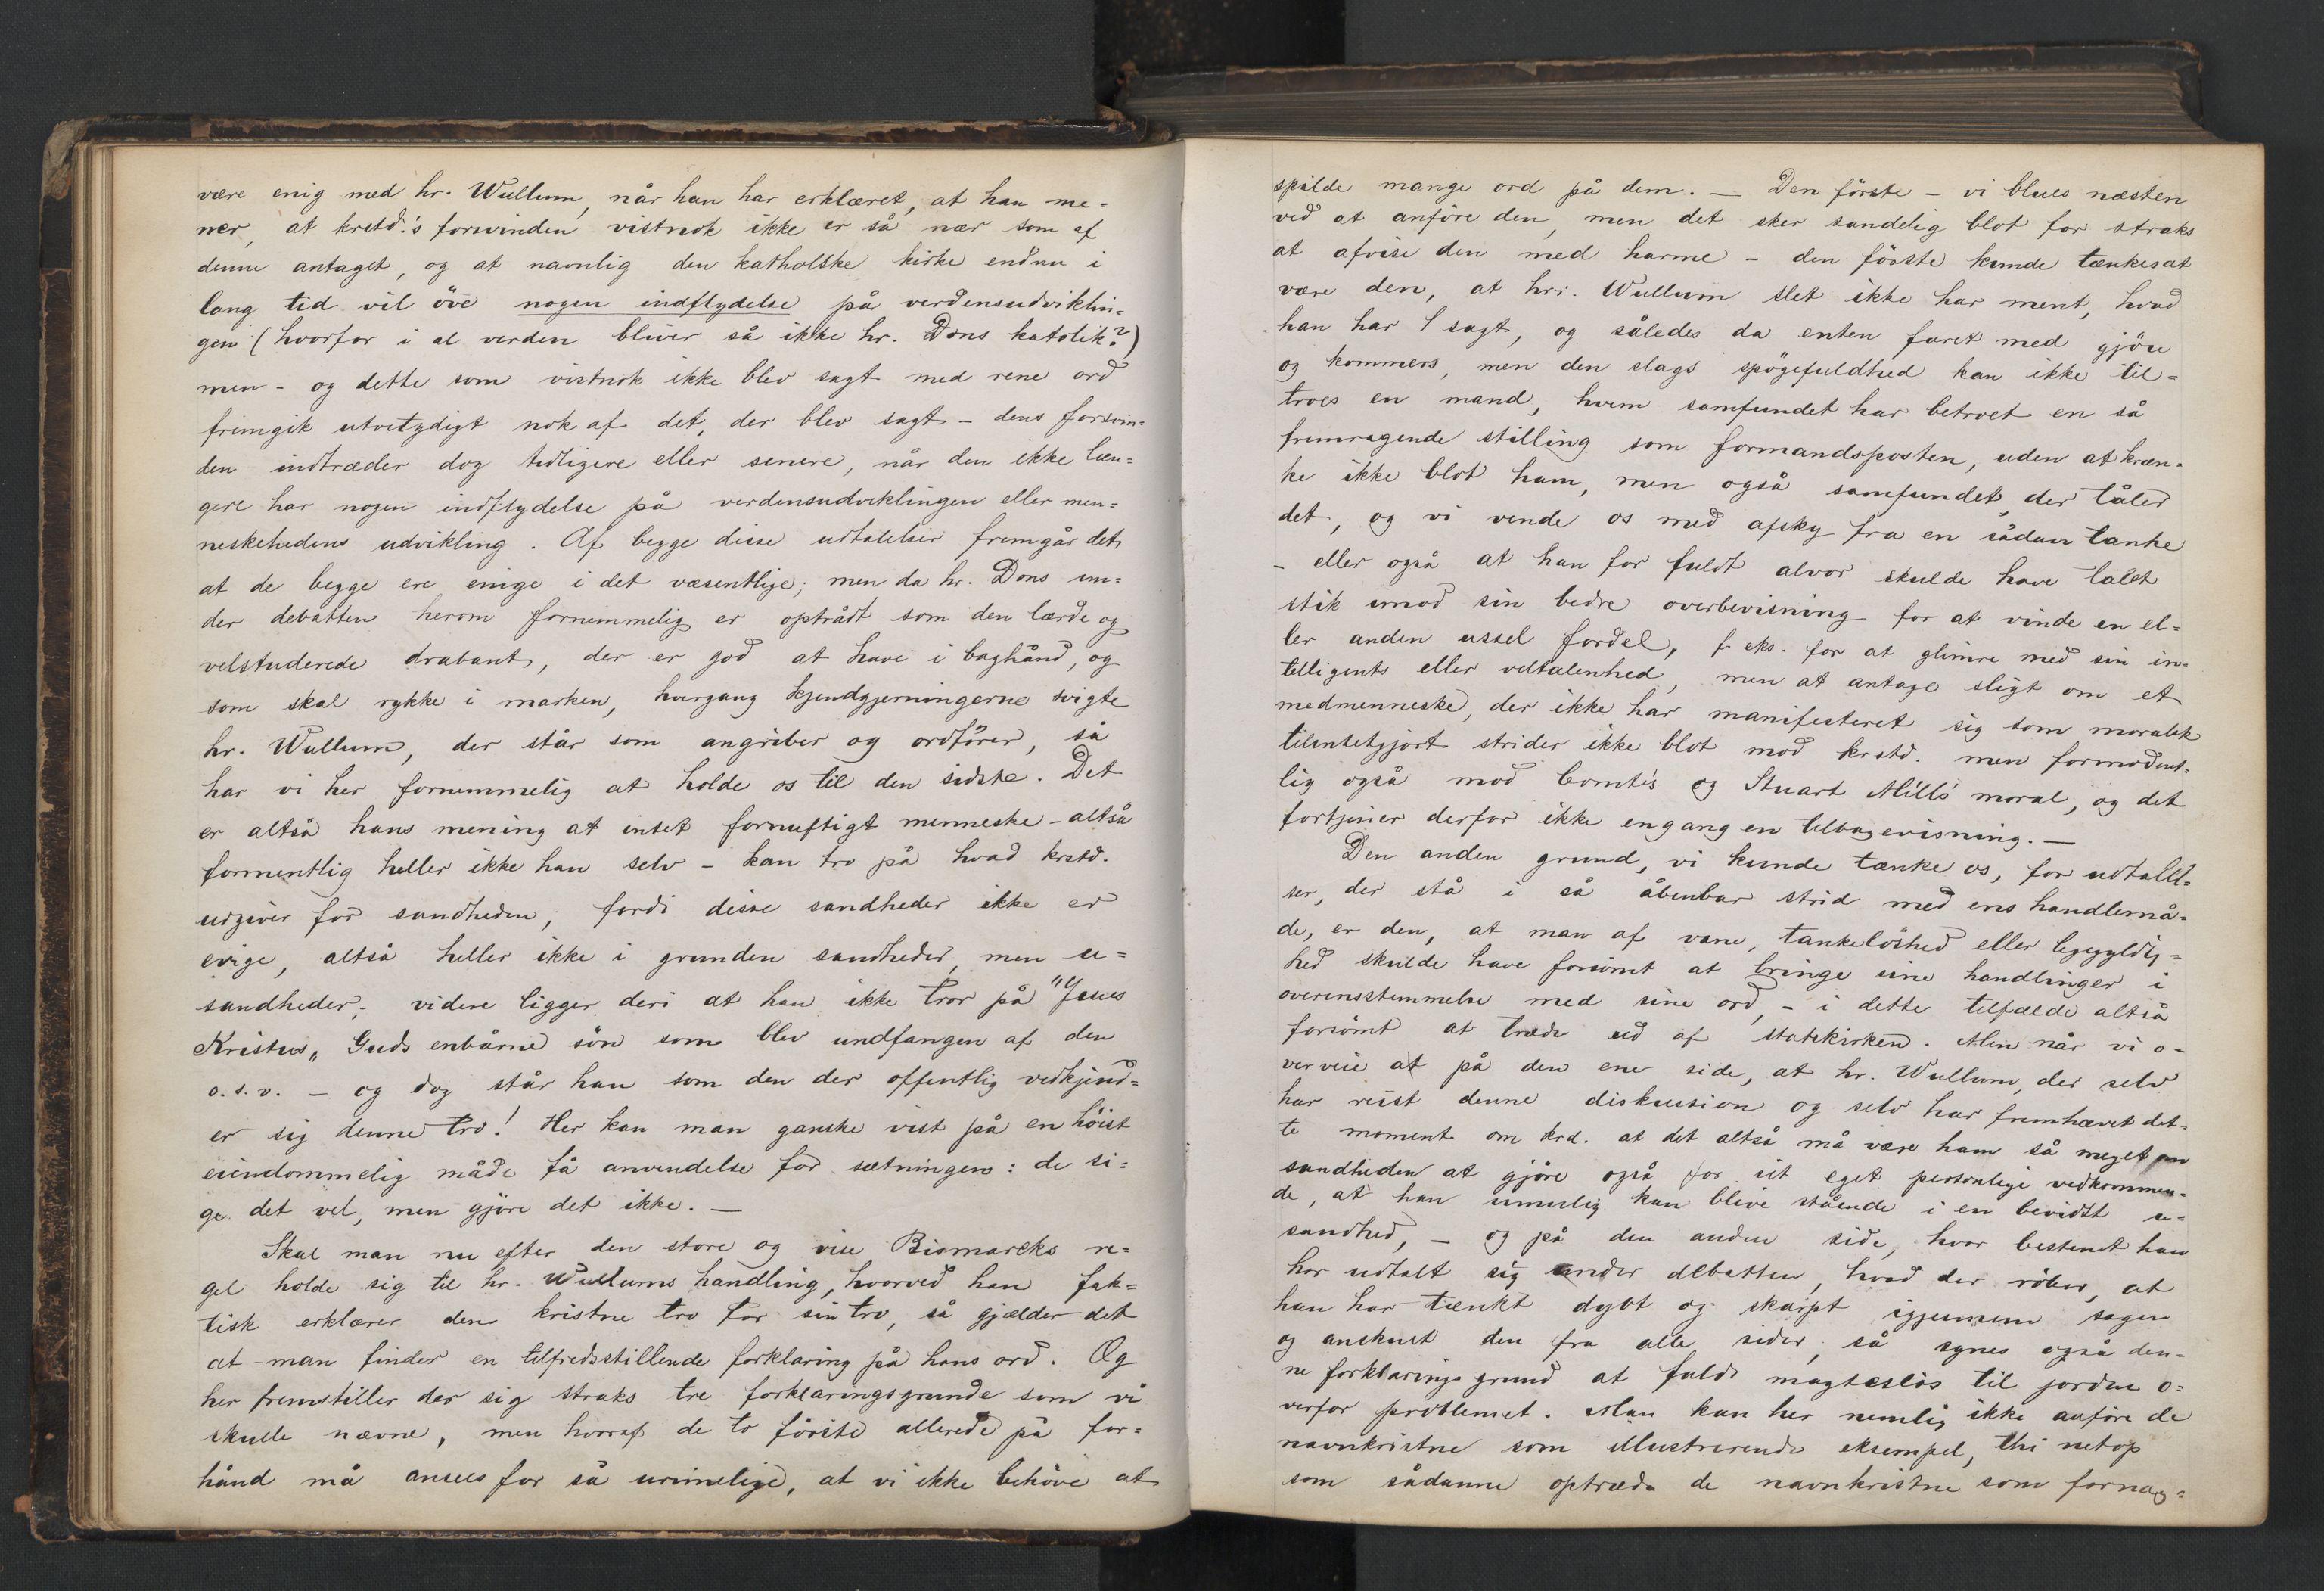 være enig med hr. Wullum, når han har erklæret, at han me=
ner, at krstd.'s forsvinden vistnok ikke er så nær som af
denne antaget, og at navnlig den katholske kirke endnu i
lang tid vil öve nogen indflydelse på verdensudviklin=
gen (hvorfor i al verden bliver så ikke hr. Dons katolik?)
men - og dette som vistnok ikke blev sagt med rene ord
fremgik utvetydigt nok af det, der blev sagt - dens forsvin=
den indtræder dog tidligere eller senere, når den ikke læn=
gere har nogen indflydelse på verdensudviklingen eller men=
neskehedens udvikling. Af begge disse udtalelser fremgår det,
at de begge ere enige i det væsentlige; men da hr. Dons un=
der debatten herom fornemmelig er optrådt som den lærde og
velstuderede drabant, der er god at have i baghånd, og
som skal rykke i marken, hvergang kjendgjerningerne svigte
hr. Wullum, der står som angriber og ordförer, så
har vi her fornemmelig at holde os til den sidste. Det
er altså hans mening at intet fornuftigt menneske - altså
formentlig heller ikke han selv - kan tro på hvad krstd.
udgiver for sandheden, fordi disse sandheder ikke er
evige, altså heller ikke i grunden sandheder, men u=
sandheder; videre ligger deri at han ikke tror på "Jesus
Kristus" Guds enbårne sön som blev undfangen af den
o.s.v. - og dog står han som den der offentlig vedkjend=
er sig denne tro! Her kan man ganske vist på en höist
eiendommelig måde få anvendelse for sætningen: de si=
ge det vel, men gjöre det ikke. —
Skal man nu efter den store og vise Bismarcks re=
gel holde sig til hr. Wullums handling, hvorved han fak=
tisk erklærer den kristne tro for sin tro, så gjælder det
at man finder en tilfredsstillende forklaring på hans ord. Og
her fremstiller der sig straks tre forklaringsgrunde som vi
skulle nævne, men hvoraf de to förste allerede på for=
hånd må ansees for så urimelige, at vi ikke behöve at
spilde mange ord på dem. — Den förste - vi blues næsten
ved at anföre den, men det sker sandelig blot for straks
at afvise den med harme - den förste kunde tænkes at
være den, at hr. Wullum slet ikke har ment, hvad
han har sagt, og således da enten faret med gjöse
og kommers, men den slags spögefuldhed kan ikke til=
troes en mand, hvem samfundet har betroet en så
fremragende stilling som formandsposten, uden at kræn=
ke ikke blot ham, men også samfundet, der tåler
det, og vi vende os med afsky fra en sådan tanke
- eller også at han for fuldt alvor skulde have talt
stik imod sin bedre overbevisning for at vinde en el=
ler anden ussel fordel, f. eks. for at glimre med sin in=
telligents eller veltalenhed, men at antage sligt om et
medmenneske, der ikke har manifesteret sig som moralsk
tilintetgjort strider ikke blot mod krstd. men formodent=
lig også mod Comte's og Stuart Mill's moral, og det
fortjener derfor ikke engang en tilbagevisning. —
Den anden grund, vi kunde tænke os, for udtalel=
ser, der stå i så åbenbar strid med ens handlemå=
de, er den, at man af vane, tankelöshed eller ligegyldig=
hed skulde have forsömt at bringe sine handlinger i
overensstemmelse med sine ord, - i dette tilfælde altså
forsömt at træde ud af statskirken. Men når vi o=
verveie at på den ene side, at hr. Wullum, der selv
har reist denne diskussion og selv har fremhævet det=
te moment om krd. at det altså må være ham så meget om
sandheden at gjöre også for sit eget personlige vedkommen=
de, at han umulig kan blive stående i en bevidst u=
sandhed, - og på den anden side, hvor bestemt han
har udtalt sig under debatten, hvad der röber, at
han har tænkt dybt og skarpt igjennem sagen
og anskuet den fra alle sider, så synes også den=
ne forklaringsgrund at falde magteslös til jorden o=
verfor problemet. Man kan her nemlig ikke anföre de
navnkristne som illustrerende eksempel, thi netop
som sådanne optræde de navnkristne som fornæg=